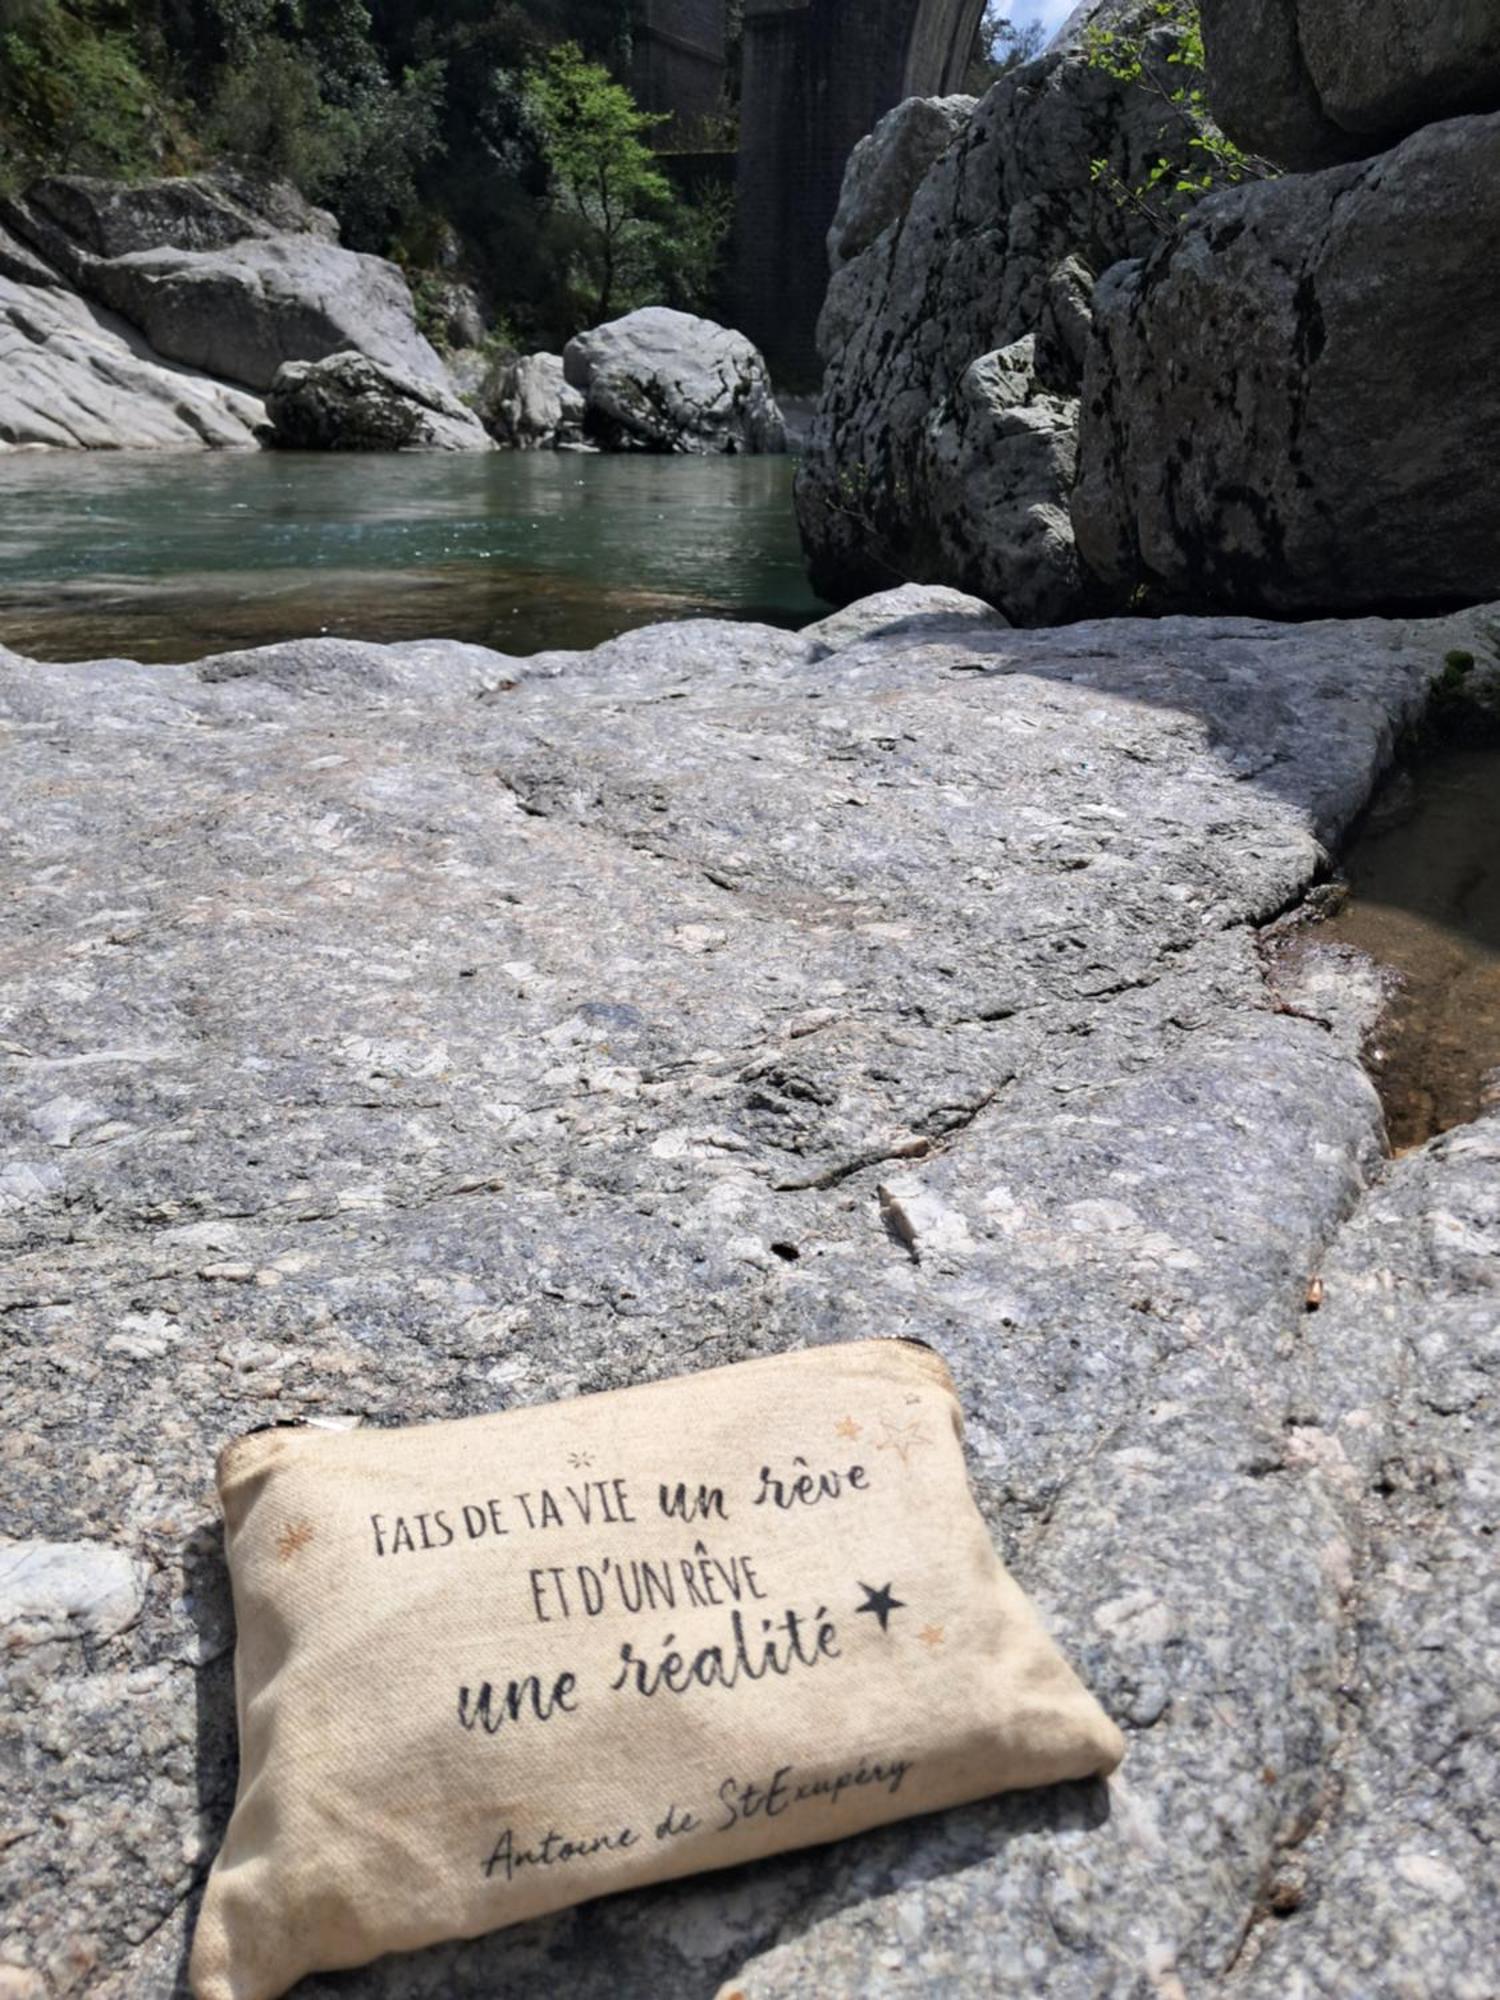 FAIS DE TA VIE un rêve
ET D'UN RÊVE
une réalité
Antoine de St Exupéry